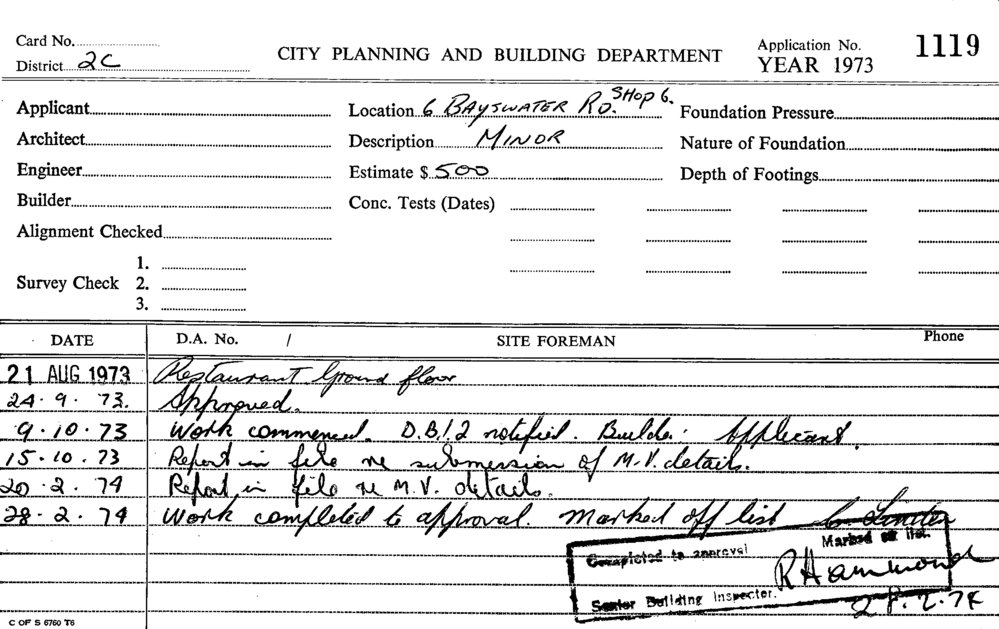 Card No.
District 2C
CITY PLANNING AND BUILDING DEPARTMENT
Application No. 1119
YEAR 1973
Applicant
Location 6 BAYSWATER RD. SHOP 6.
Foundation Pressure
Architect
Description MINOR
Nature of Foundation
Engineer
Estimate $ 500
Depth of Footings
Builder
Conc. Tests (Dates)
Alignment Checked
Survey Check 1.
2.
3.
DATE D.A. No. / SITE FOREMAN Phone
21 AUG 1973 Restaurant Ground floor
24.9.73. Approved.
9.10.73 Work commenced. D.B.I. 2 notified. Builder. Applicant.
15.10.73 Report in file re submission of M.V. details.
20.2.74 Report in file re M.V. details.
28.2.74 Work completed to approval. Marked off list
Completed to approval Marked off list.
R Hammond
Senior Building Inspector.
28.2.74
C OF S 6760 T6